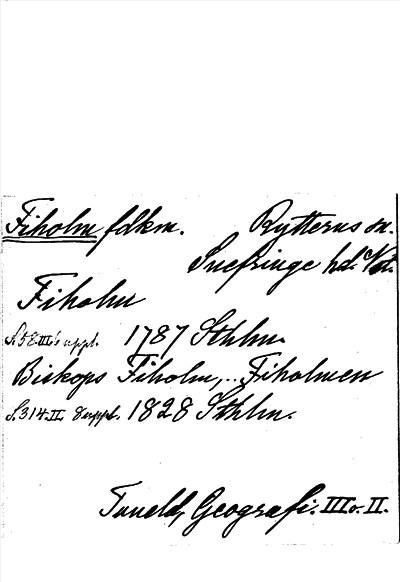 Fiholm fdkm. Rytterns sn.
Snefringe hd. Vstm.
Fiholm
S. 58 III's uppl. 1787 Sthlm.
Biskops Fiholm, .. Fiholmen
S. 314. II. 8 uppl. 1828 Sthlm.
Tuneld, Geografi. III o. II.